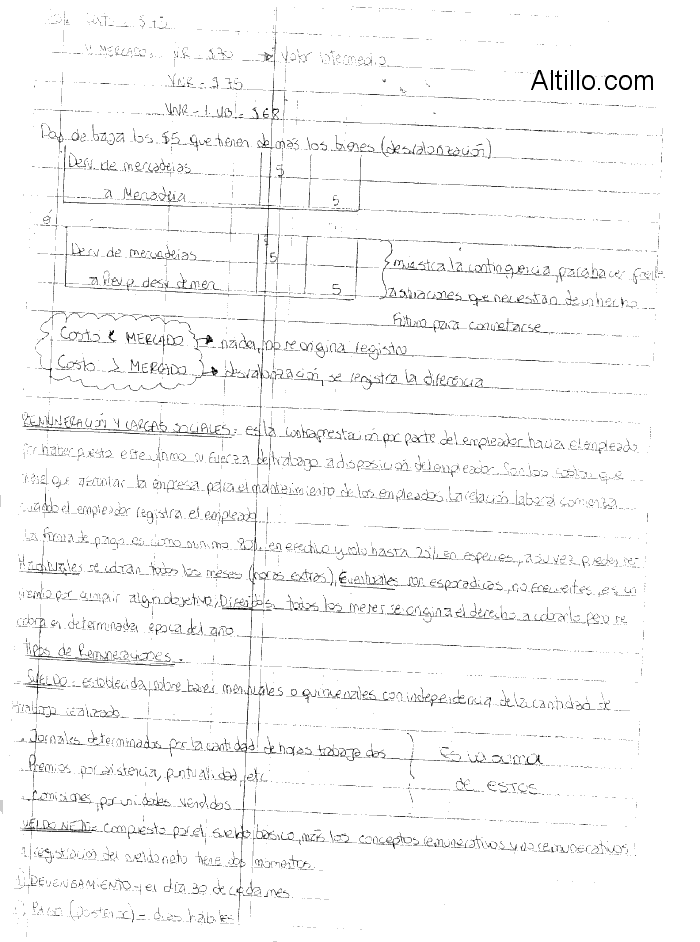 V MERCADO: V.R = $70 → Valor Intermedio
Altillo.com
VNR = $75
VNR - 1. UB = $68
Doy de baja los $5 que tienen de más los bienes (desvalorización)
Desv. de mercaderías 5
a Mercadería 5
o
Desv. de mercaderías 5
a Prevp. desv. de mer 5
muestra la contingencia, para hacer frente
a situaciones que necesitan de un hecho
futuro para concretarse
Costo < MERCADO → nada, no se origina registro
Costo > MERCADO → desvalorización, se registra la diferencia
REMUNERACIÓN Y CARGAS SOCIALES: es la contraprestación por parte del empleador hacia el empleado
por haber puesto este último su fuerza de trabajo a disposición del empleador. Son los costos que
tiene que afrontar la empresa para el mantenimiento de los empleados. La relación laboral comienza
cuando el empleador registra el empleado
La forma de pago es como mínimo 80% en efectivo y solo hasta 20% en especies, a su vez pueden ser
Habituales se cobran todos los meses (horas extras), Eventuales son esporádicas, no frecuentes, es un
premio por cumplir algún objetivo, Diferidos todos los meses se origina el derecho a cobrarlo pero se
cobra en determinada época del año.
Tipos de Remuneraciones.
. SUELDO: establecida sobre bases mensuales o quincenales con independencia de la cantidad de
trabajo realizado
. Jornales determinados por la cantidad de horas trabajadas
Es la suma
Premios por asistencia, puntualidad, etc
de ESTOS
. comisiones, por unidades vendidas
SUELDO NETO = compuesto por el sueldo básico, más los conceptos remunerativos y no remunerativos
La registración del sueldo neto tiene dos momentos
1) DEVENGAMIENTO = el día 30 de cada mes
2) PAGO (posterior) = días hábiles